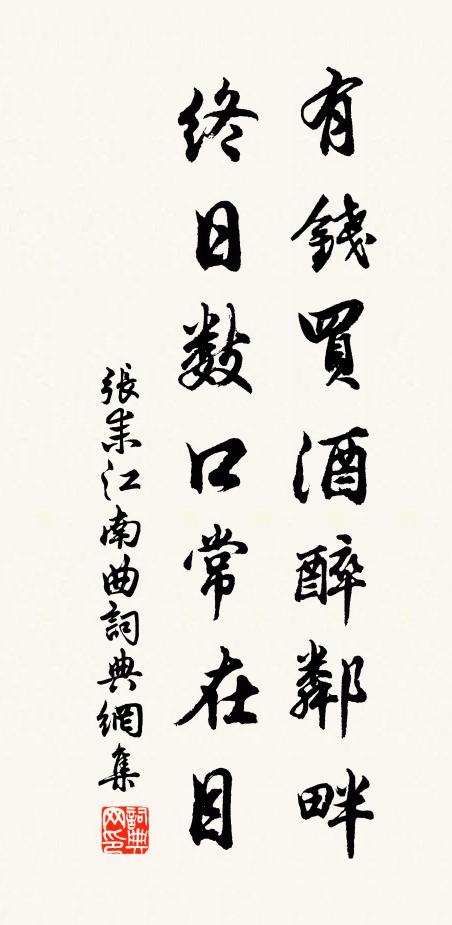 有錢買酒醉鄰畔
終日數口常在目
張耒江南曲詞典網集
詞典網印